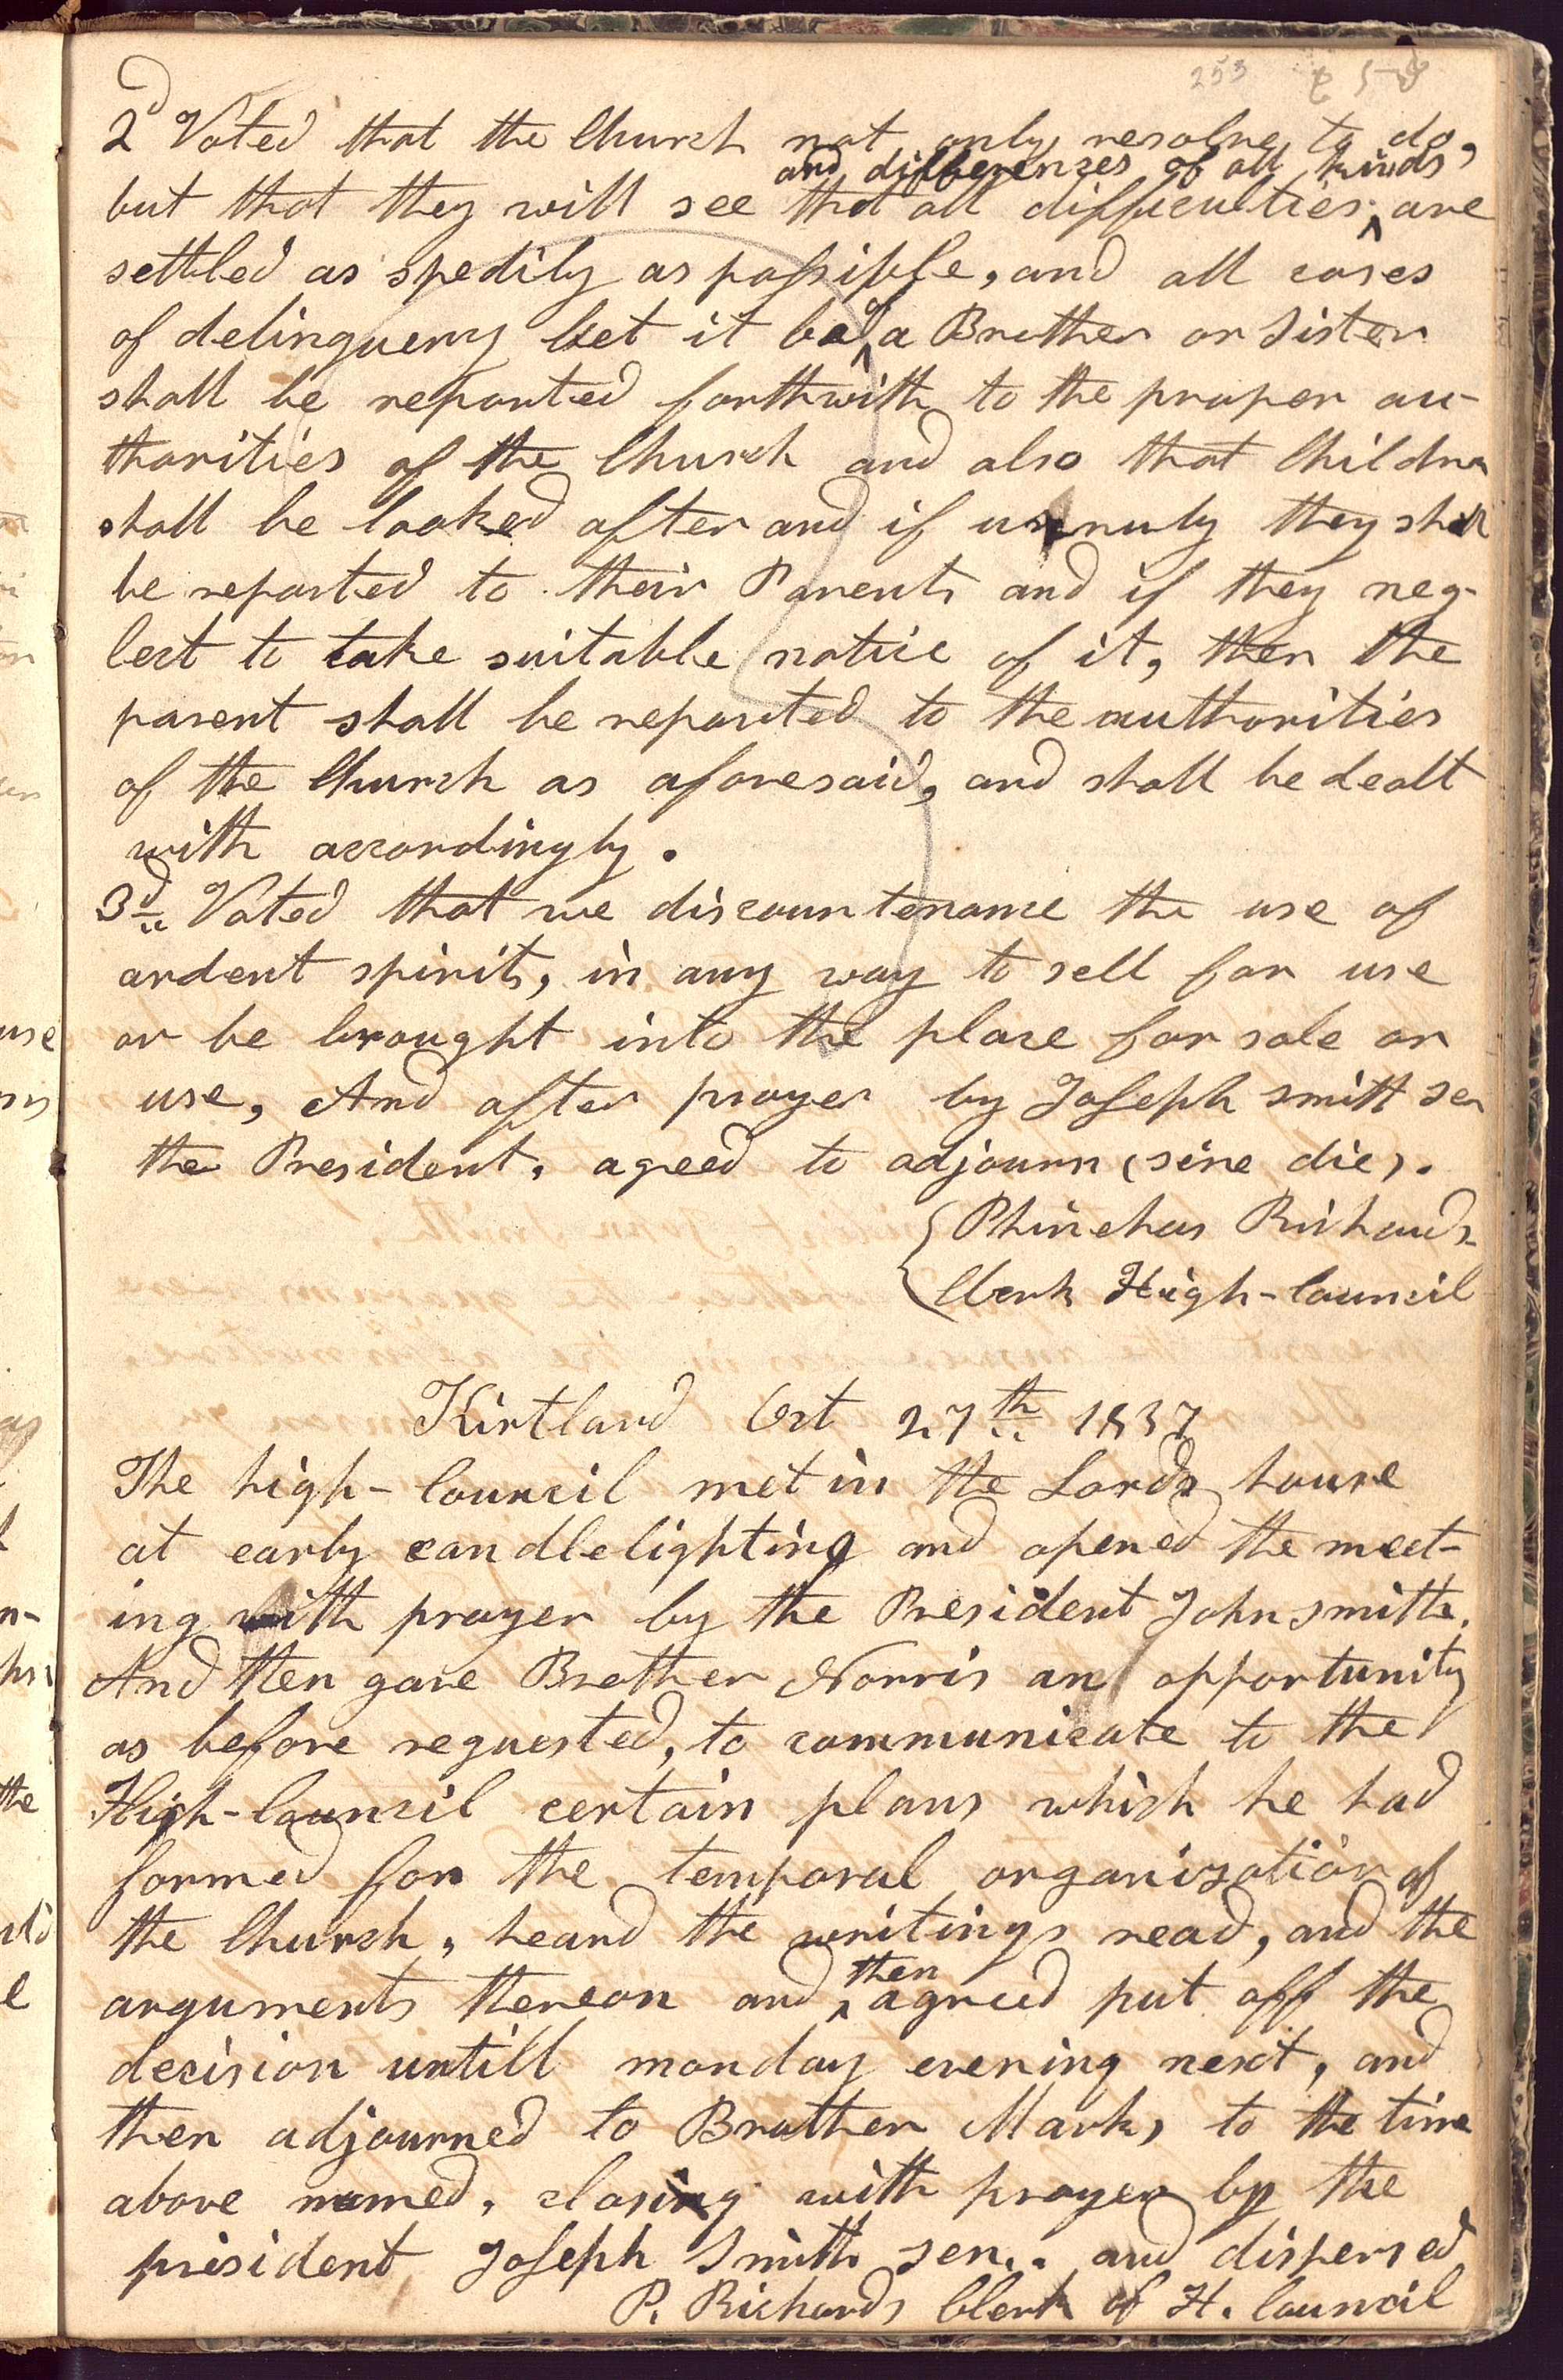 253
2d Voted that the Church not only resolve to do,
but that they will see that all difficulties and differences of all kinds, are
settled as spedily as possible, and all cases
of delinquency let it be of a Brother or Sister
shall be reported forthwith to the proper au-
thorities of the Church and also that Childrn
shall be looked after and if unruly they shall
be reported to their Parents and if they neg-
lect to take suitable notice of it, then the
parent shall be reported to the authorities
of the Church as aforesaid, and shall be dealt
with accordingly.
3d Voted that we discountenance the use of
ardent spirits, in any way to sell for use
or be brought into the place for sale or
use, And after prayer by Joseph Smith sen
the President, agreed to adjourn (sine die).
Phinehas Richards
Clerk High-Council
Kirtland Oct 27th 1837
The high-Council met in the Lords house
at early candlelighting and opened the meet-
ing with prayer by the President John Smith.
And then gave Brother Norris an opportunity
as before requested, to communicate to the
High-Council certain plans which he had
formed for the temporal organization of
the Church, heard the writings read, and the
arguments thereon and then agreed put off the
decision untill monday evening next, and
then adjourned to Brother Marks, to the time
above named, closing with prayer by the
president Joseph Smith sen.. and dispersed
P. Richards Clerk of H. Council